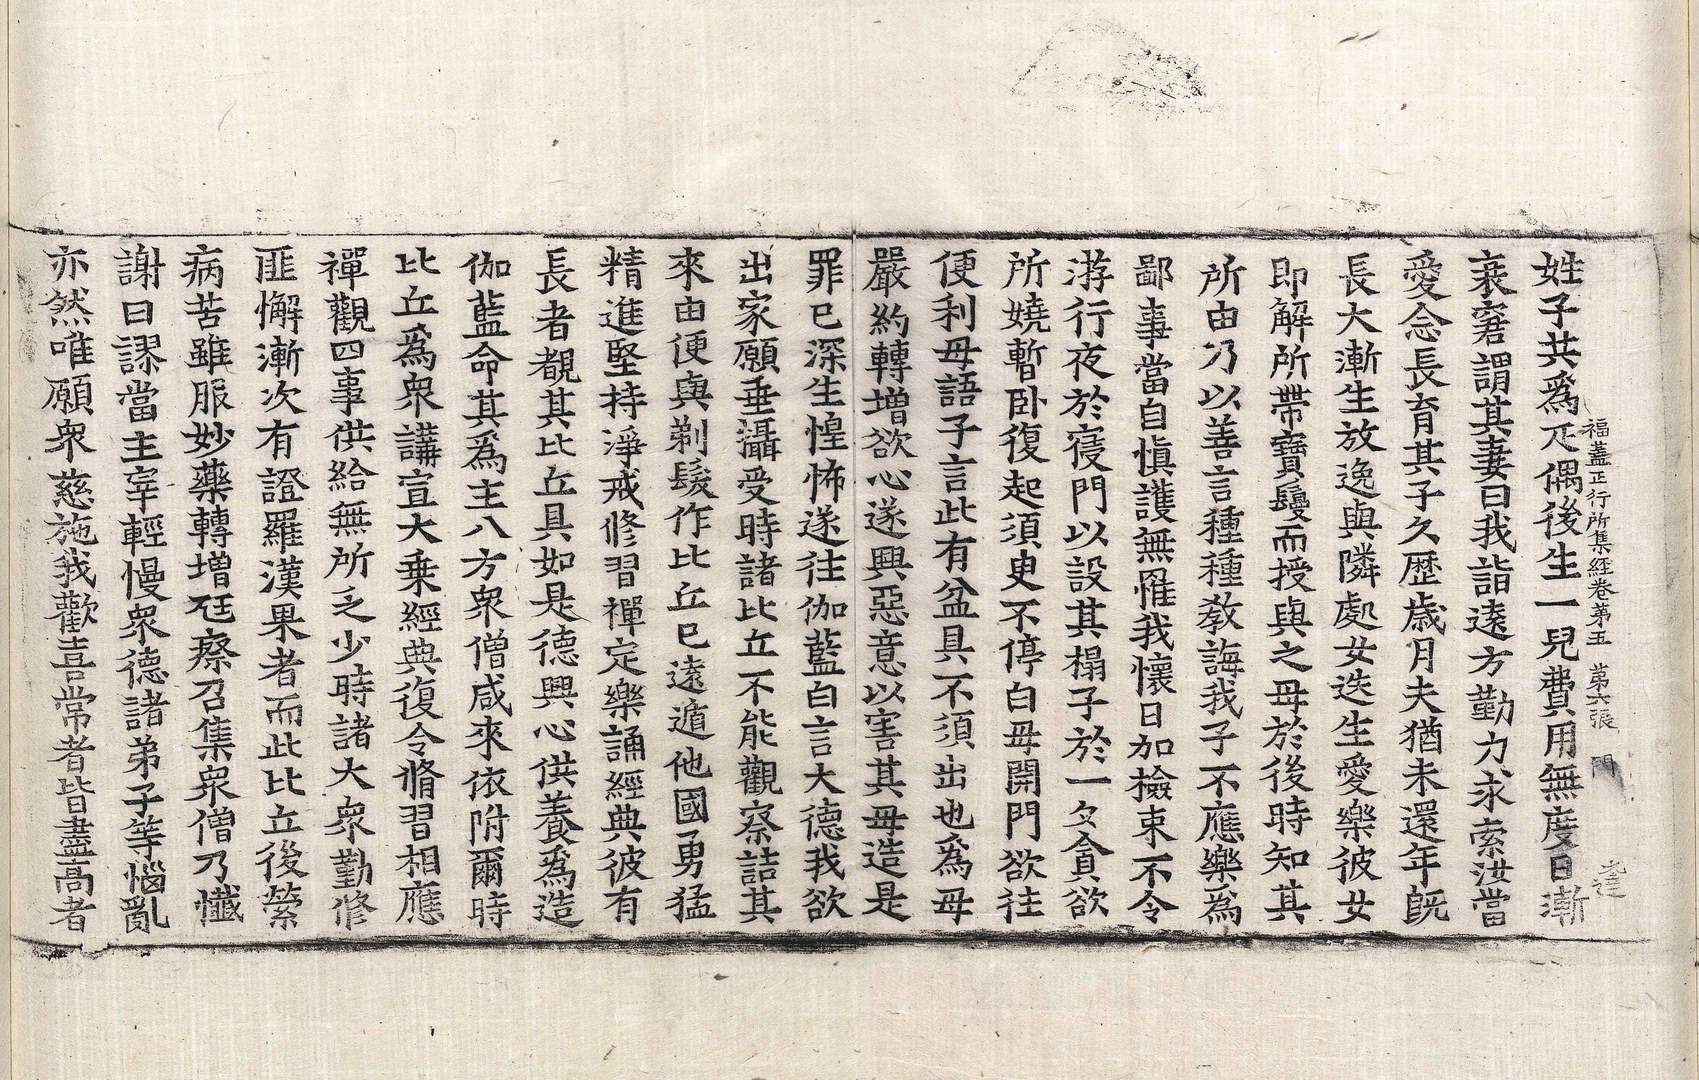 福蓋正行所集經卷第五 第六張 門
姓子共爲疋偶後生一兒費用無度日漸
衰窘謂其妻曰我詣遠方勤力求索汝當
愛念長育其子久歷歲月夫猶未還年旣
長大漸生放逸與隣處女迭生愛樂彼女
即解所帶寶鬘而授與之母於後時知其
所由乃以善言種種敎誨我子不應樂爲
鄙事當自愼護無罹我懷日加撿束不令
游行夜於寢門以設其榻子於一夕貪欲
所嬈暫卧復起須臾不停白母開門欲往
便利母語子言此有盆具不須出也爲母
嚴約轉增欲心遂興惡意以害其母造是
罪已深生惶怖遂往伽藍白言大德我欲
出家願垂攝受時諸比丘不能觀察詰其
來由便與剃髮作比丘已遠遁他國勇猛
精進堅持淨戒修習禪定樂誦經典彼有
長者覩其比丘具如是德興心供養爲造
伽藍命其爲主八方衆僧咸來依附爾時
比丘爲衆講宣大乗經典復令脩習相應
禪觀四事供給無所乏少時諸大衆勤修
匪懈漸次有證羅漢果者而此比丘後縈
病苦雖服妙藥轉增尫瘵召集衆僧乃懺
謝曰謬當主宰輕慢衆德諸弟子等惱亂
亦然唯願衆慈施我歡喜常者皆盡高者